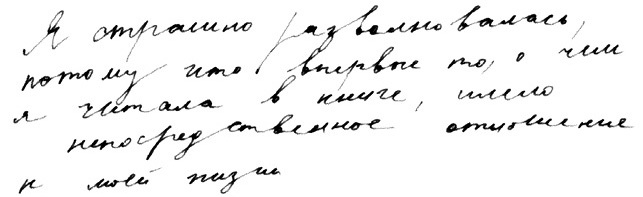 Я страшно разволновалась,
потому что впервые то, о чем
я читала в книге, имело
непосредственное отношение
к моей жизни